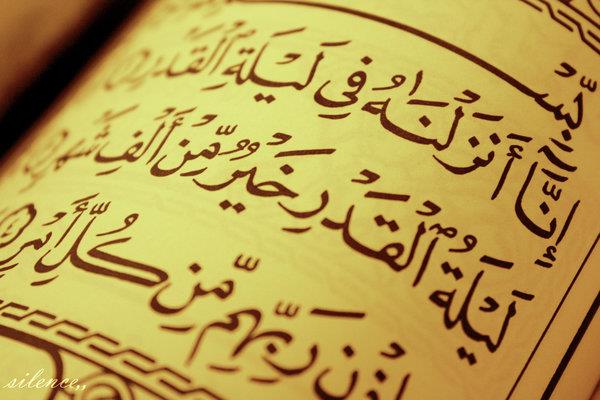 بِسْ
إِنَّآ أَنزَلْنَٰهُ فِى لَيْلَةِ ٱلْقَدْرِ
لَيْلَةُ ٱلْقَدْرِ خَيْرٌ مِّنْ أَلْفِ شَهْرٍ
رَبِّهِم مِّن كُلِّ أَمْرٍ
silence,,